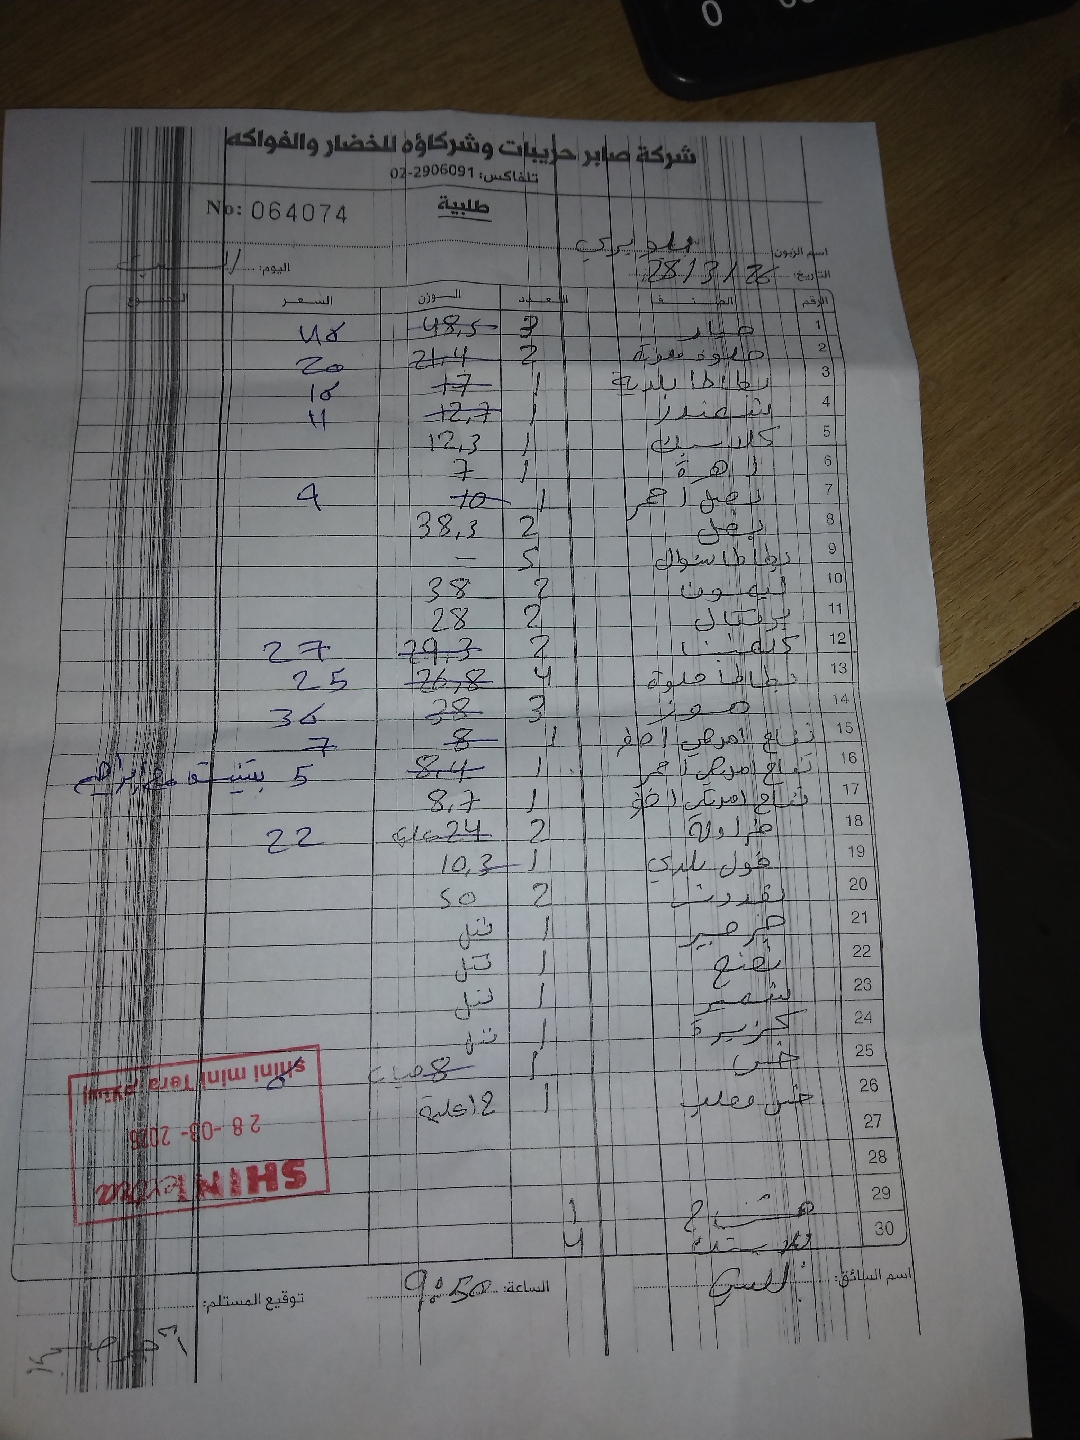 شركة صابر حريبات وشركاؤه للخضار والفواكه
تلفاكس: 02-2906091
No: 064074 طلبية
اسم الزبون:
التاريخ: 28/3/26 اليوم: السبت
الرقم الصنف العدد الوزن السعر المجموع
1 خيار 3 48,5
2 2 21,4 20
3 بطاطا بلدية 1 17
4 شمندر 1 12,7 11
5 1 12,3
6 زهرة 1 7
7 بصل احمر 1 10 9
8 بصل 2 38,3
9 بطاطا شوال 5 -
10 ليمون 2 38
11 برتقال 2 28
12 كلمنتينا 2 29,3 27
13 بطاطا حلوة 4 26,8 25
14 موز 3 38
15 تفاح اخضر 1 8 7
16 تفاح احمر 1 8,4 5
17 تفاح اخضر 1 8,7
18 فراولة 2 24 علبة 22
19 فول بلدي 1 10,3
20 بقدونس 2 50
21 جرجير 1
22 نعنع 1
23 شومر 1
24 كزبرة 1
25 خس 1 8
26 خس معلب 1 12 علبة
27
28
29 مشتاح 1
30 بلاستيك 4
اسم السائق: الساعة: 9:50 توقيع المستلم:
shini mini Tera استلام
28-03-2026
SHINI extra